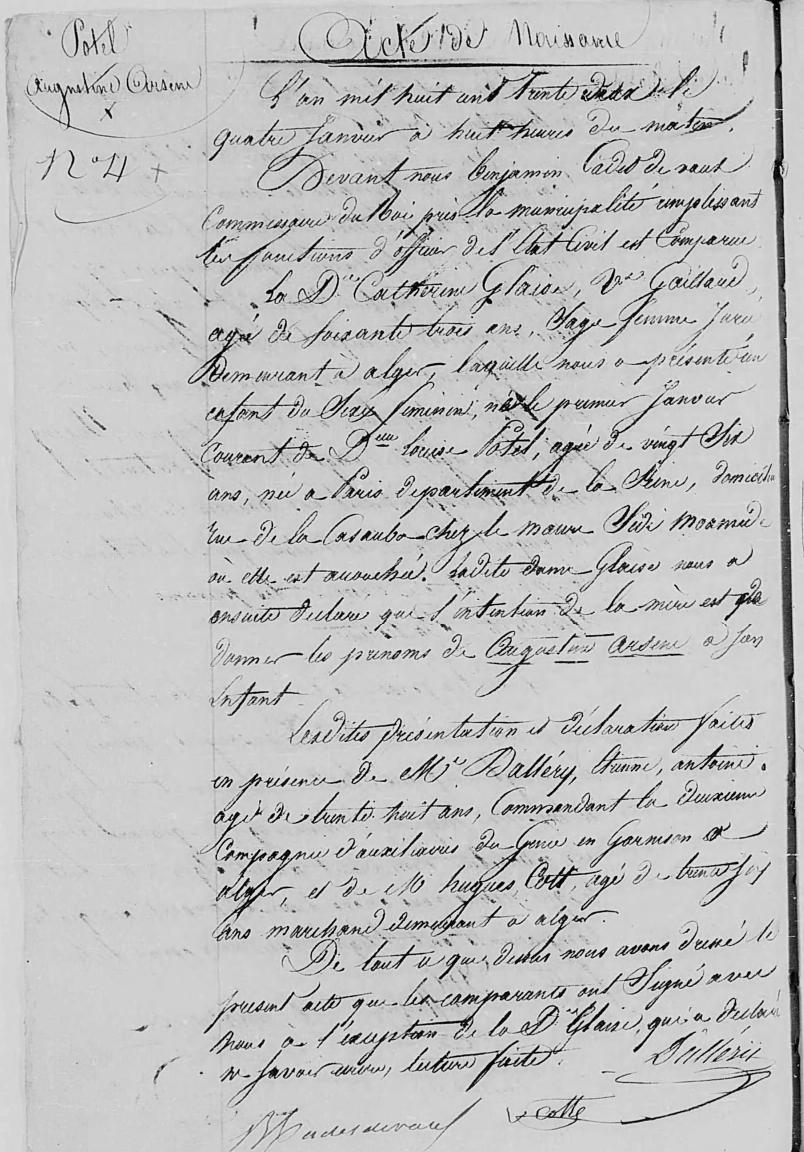 Potel
Augustine Arsène
N° 4
Acte de Naissance
L'an mil huit cent trente deux le
quatre Janvier à huit heures du matin.
Devant nous Benjamin Cadet de vaux
Commissaire du Roi près la municipalité remplissant
les fonctions d'officier de l'Etat Civil est Comparue
La De Catherine Glaise, Ve Gaillard,
agée de soixante trois ans, Sage femme Juré
Demeurant à alger, laquelle nous a présenté un
enfant du Sexe féminin, née le premier Janvier
Courant de Delle Louise Potel, agée de vingt Six
ans, née à Paris département de la Seine, domiciliée
rue de la Casauba chez le maure Sidi
où elle est accouchée. Ladite dame Glaise nous a
ensuite declaré que l'intention de la mère est de
donner les prenoms de Augustine arsene à son
Enfant
Lesdites présentation et déclaration faites
en présence de Mr Dalléry, Etienne, antoine.
agé de trente huit ans, Commandant la deuxieme
Compagnie d'auxiliaires du Genie en Garnison à
alger, et de M hugues, Cott, agé de trente six
ans marchand demeurant à alger.
De tout ce que dessus nous avons dressé le
présent acte que les comparants ont Signé avec
nous à l'exception de la De Glaise, qui a declaré
ne savoir ecrire, lecture faite. Dalléry
Cadet de vaux cotte